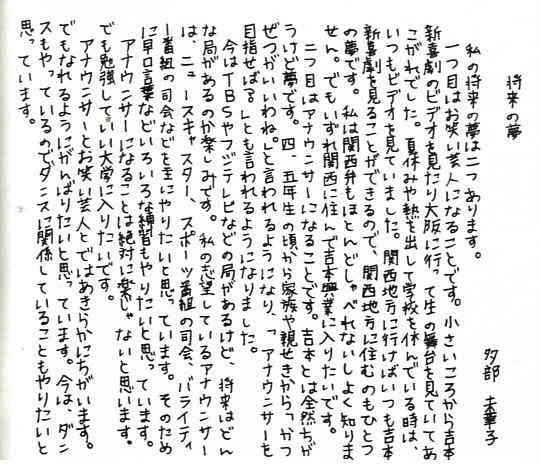 将来の夢
多部 未華子
私の将来の夢は二つあります。
一つ目はお笑い芸人になることです。小さいころから吉本
新喜劇のビデオを見たり大阪に行って生の舞台を見ていてあ
こがれでした。夏休みや熱を出して学校を休んでいる時は、
いつもビデオを見ていました。関西地方に行けばいつも吉本
新喜劇を見ることができるので、関西地方に住むのもひとつ
の夢です。私は関西弁もほとんどしゃべれないしよく知りま
せん。でもいずれ関西に住んで吉本興業に入りたいです。
二つ目はアナウンサーになることです。吉本とは全然ちが
うけど夢です。四、五年生の頃から家族や親せきから「かつ
ぜつがいいわね。」と言われるようになり、「アナウンサーを
目指せば？」とも言われるようになりました。
今はTBSやフジテレビなどの局があるけど、将来はどん
な局があるのか楽しみです。私の志望しているアナウンサー
は、ニュースキャスター、スポーツ番組の司会、バライティ
ー番組の司会などを主にやりたいと思っています。そのため
に早口言葉などいろいろな練習もやりたいと思っています。
アナウンサーになることは絶対に楽じゃないと思います。
でも勉強していい大学に入りたいです。
アナウンサーとお笑い芸人とではあきらかにちがいます。
でもなれるようにがんばりたいと思っています。今は、ダン
スもやっているのでダンスに関係していることもやりたいと
思っています。